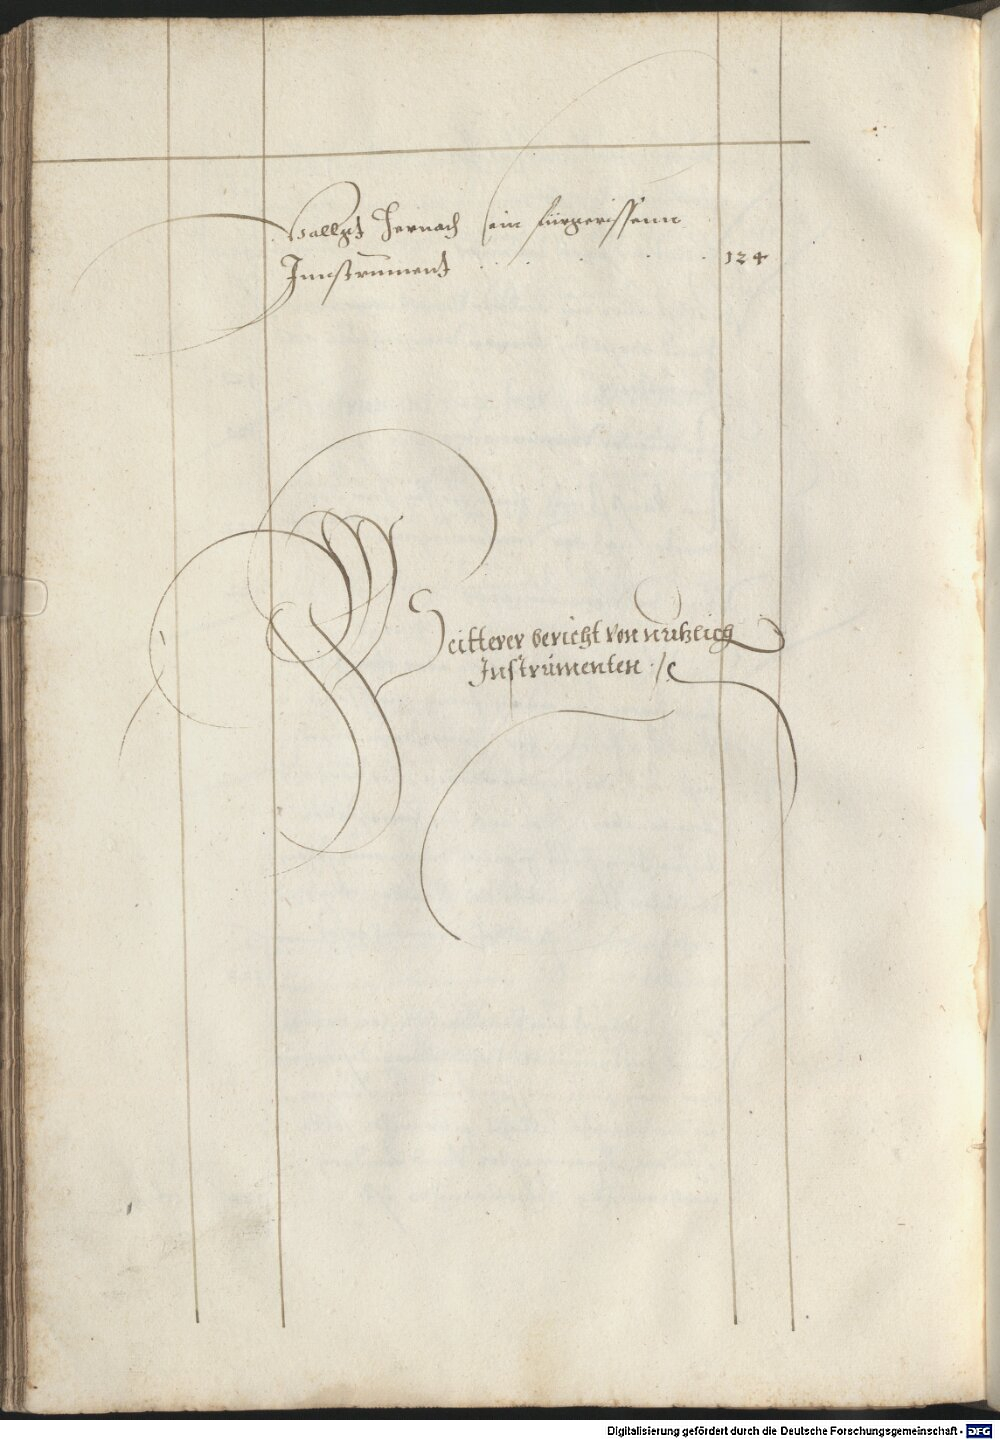 Vollgt Hernach ein fürgerissenn
Innstrument . . . . . . . 124
Weitterer bericht von nutzlich
Instrumenten ./.
Digitalisierung gefördert durch die Deutsche Forschungsgemeinschaft - DFG